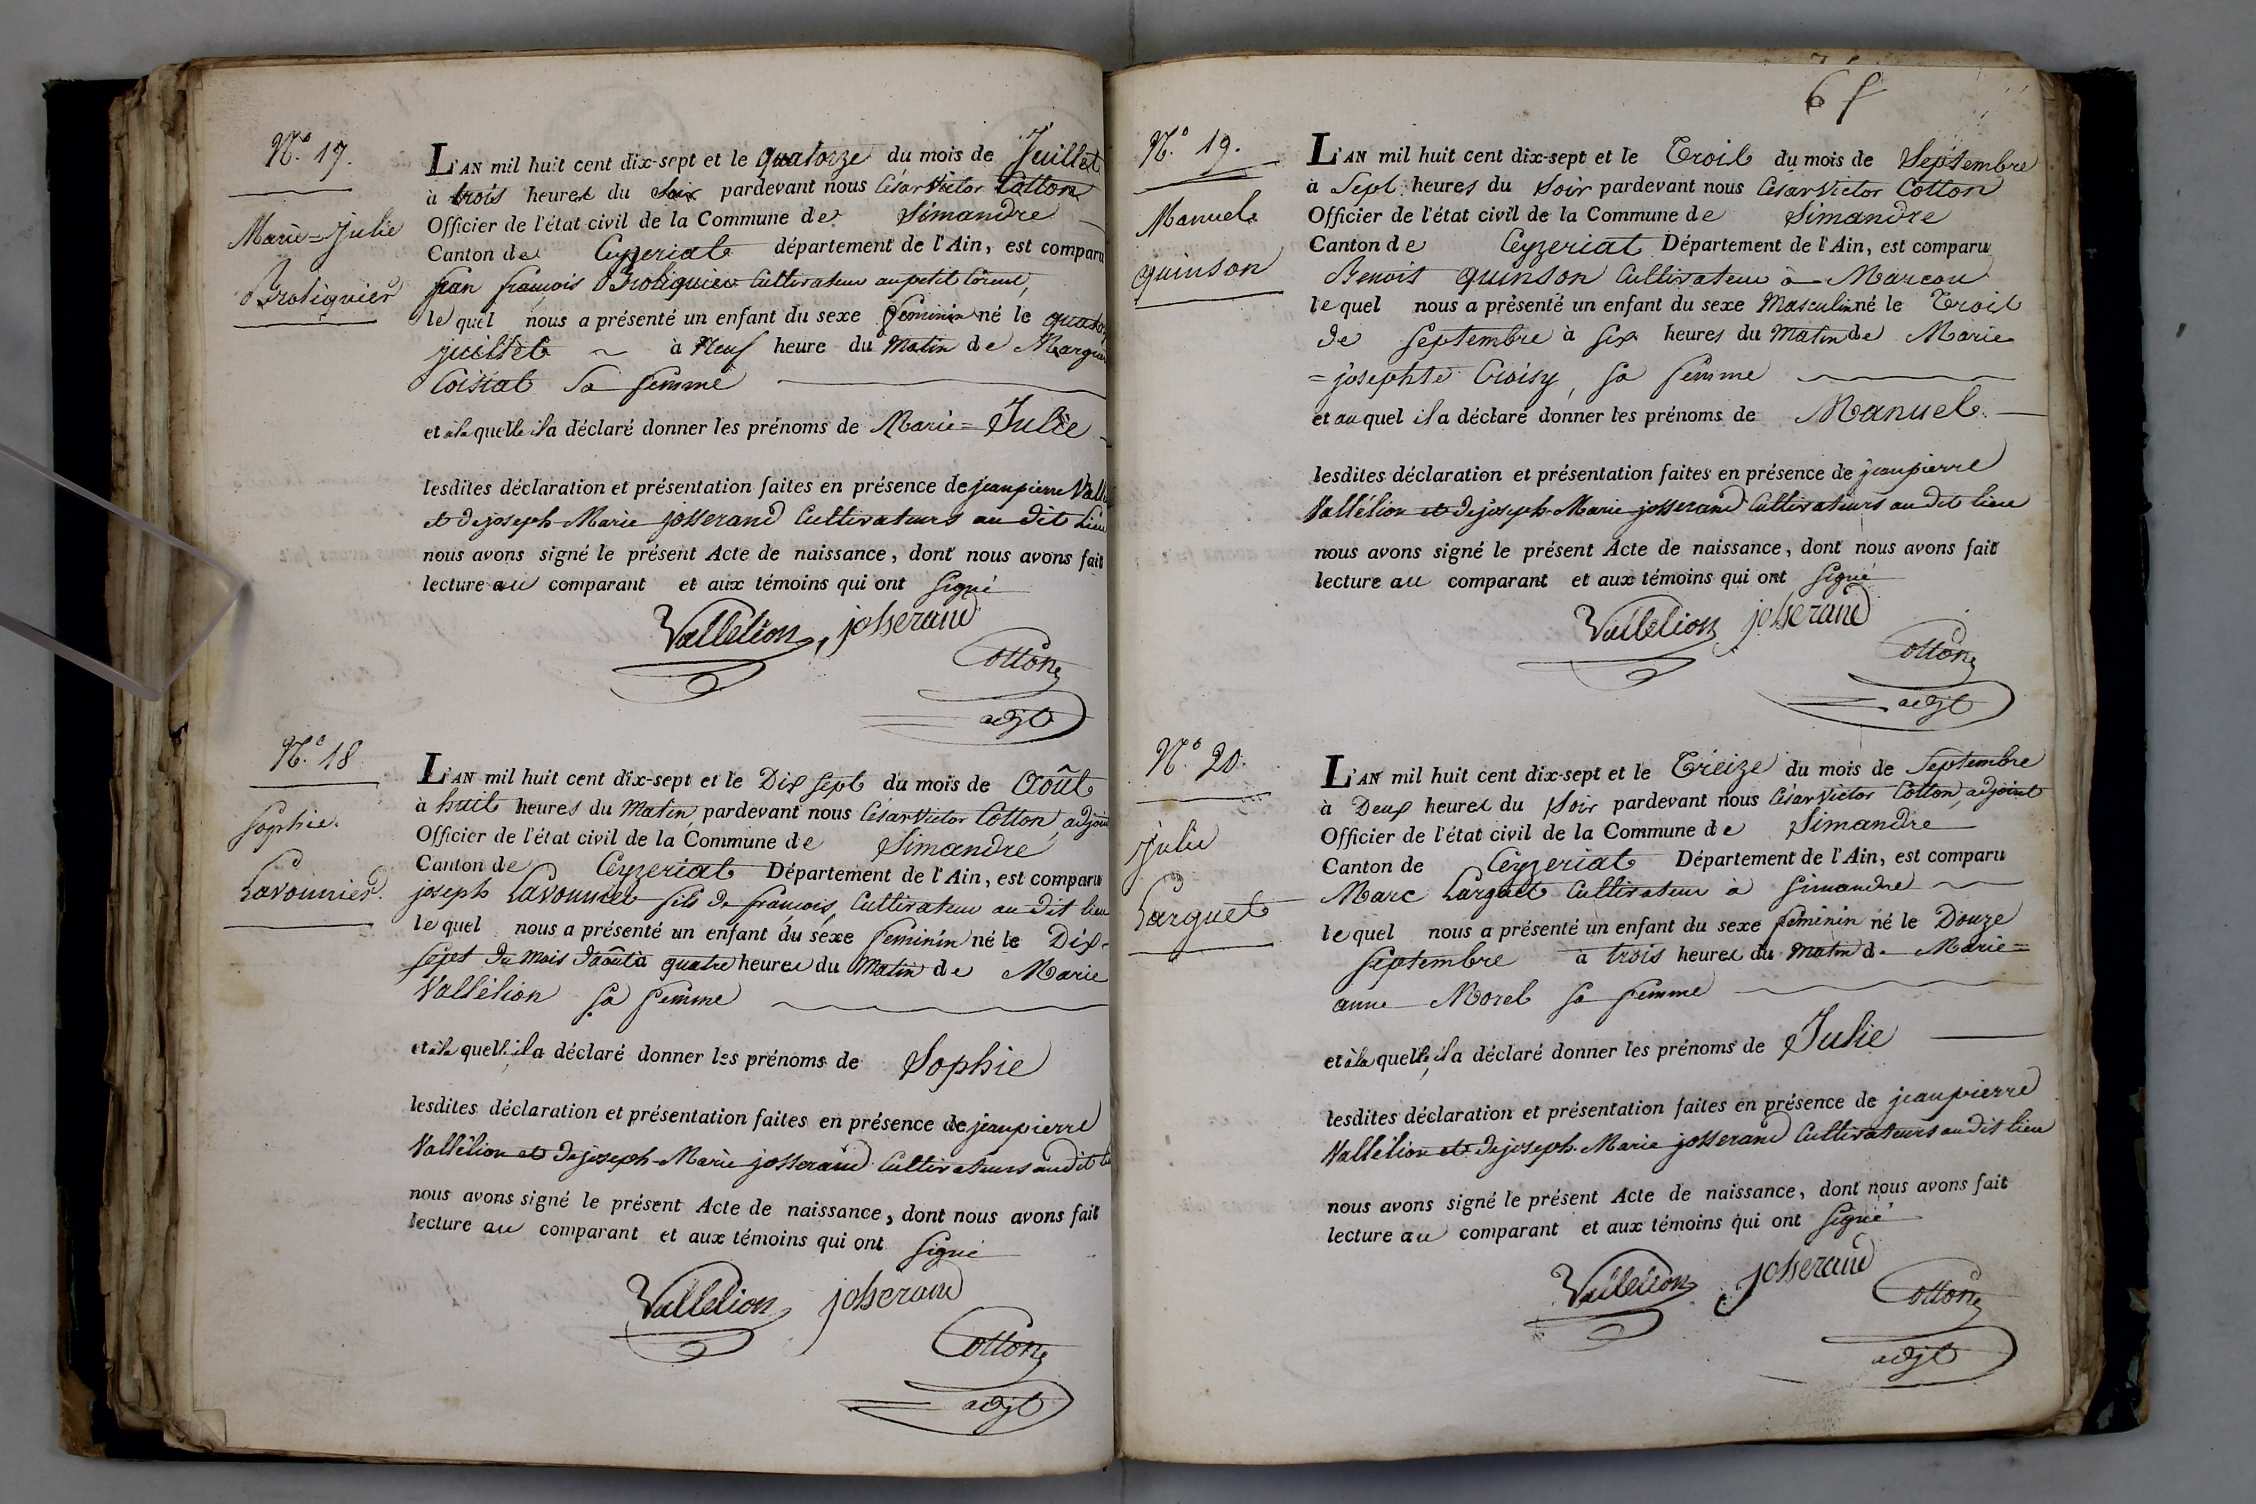 N.° 17.
Marie=Julie
Brotiquier
L'AN mil huit cent dix-sept et le quatorze du mois de Juillet
à trois heures du soir pardevant nous César Victor Cotton
Officier de l'état civil de la Commune de Simandre
Canton de Ceyzeriat département de l'Ain, est comparu
jean françois Brotiquier Cultivateur au petit
lequel nous a présenté un enfant du sexe feminin né le
juillet à Neuf heure du Matin de
Coistat Sa femme
et à la quelle il a déclaré donner les prénoms de Marie=Julie
lesdites déclaration et présentation faites en présence de jeanpierre
et de joseph Marie josserand Cultivateurs au dit lieu
nous avons signé le présent Acte de naissance, dont nous avons fait
lecture au comparant et aux témoins qui ont signé
Vallelion josserand
Cotton
adjt
N.° 18
Sophie
Lavounier
L'AN mil huit cent dix-sept et le Dix sept du mois de Août
à huit heures du Matin pardevant nous César Victor Cotton, adjoint
Officier de l'état civil de la Commune de Simandre
Canton de Ceyzeriat Département de l'Ain, est comparu
joseph Lavounier fils de françois Cultivateur au dit lieu
lequel nous a présenté un enfant du sexe feminin né le Dix-
sept du mois d'août à quatre heures du Matin de Marie
Vallélion sa femme
et à la quelle il a déclaré donner les prénoms de Sophie
lesdites déclaration et présentation faites en présence de jeanpierre
Vallélion et de joseph-Marie josserand Cultivateurs audit
nous avons signé le présent Acte de naissance, dont nous avons fait
lecture au comparant et aux témoins qui ont signé
Vallelion josserand
Cotton
adjt
6 f
N.° 19.
Manuel
quinson
L'AN mil huit cent dix-sept et le Trois du mois de Septembre
à Sept heures du soir pardevant nous César Victor Cotton
Officier de l'état civil de la Commune de Simandre
Canton de Ceyzeriat Département de l'Ain, est comparu
Benoit quinson Cultivateur à Marcou
lequel nous a présenté un enfant du sexe Masculin né le Trois
de Septembre à six heures du Matin de Marie
=josephte Croisy, sa femme
et au quel il a déclaré donner les prénoms de Manuel
lesdites déclaration et présentation faites en présence de jeanpierre
Vallélion et de joseph-Marie josserand Cultivateurs au dit lieu
nous avons signé le présent Acte de naissance, dont nous avons fait
lecture au comparant et aux témoins qui ont signé
Vallelion josserand
Cotton
adjt
N.° 20.
julie
Larguet
L'AN mil huit cent dix-sept et le Treize du mois de Septembre
à Deux heures du Soir pardevant nous César Victor Cotton, adjoint
Officier de l'état civil de la Commune de Simandre
Canton de Ceyzeriat Département de l'Ain, est comparu
Marc Larguet Cultivateur à Simandre
lequel nous a présenté un enfant du sexe feminin né le Douze
Septembre à trois heures du matin de Marie=
anne Morel sa femme
et à la quelle il a déclaré donner les prénoms de Julie
lesdites déclaration et présentation faites en présence de jeanpierre
Vallélion et de joseph-Marie josserand Cultivateurs audit lieu
nous avons signé le présent Acte de naissance, dont nous avons fait
lecture au comparant et aux témoins qui ont signé
Vallelion josserand
Cotton
adjt